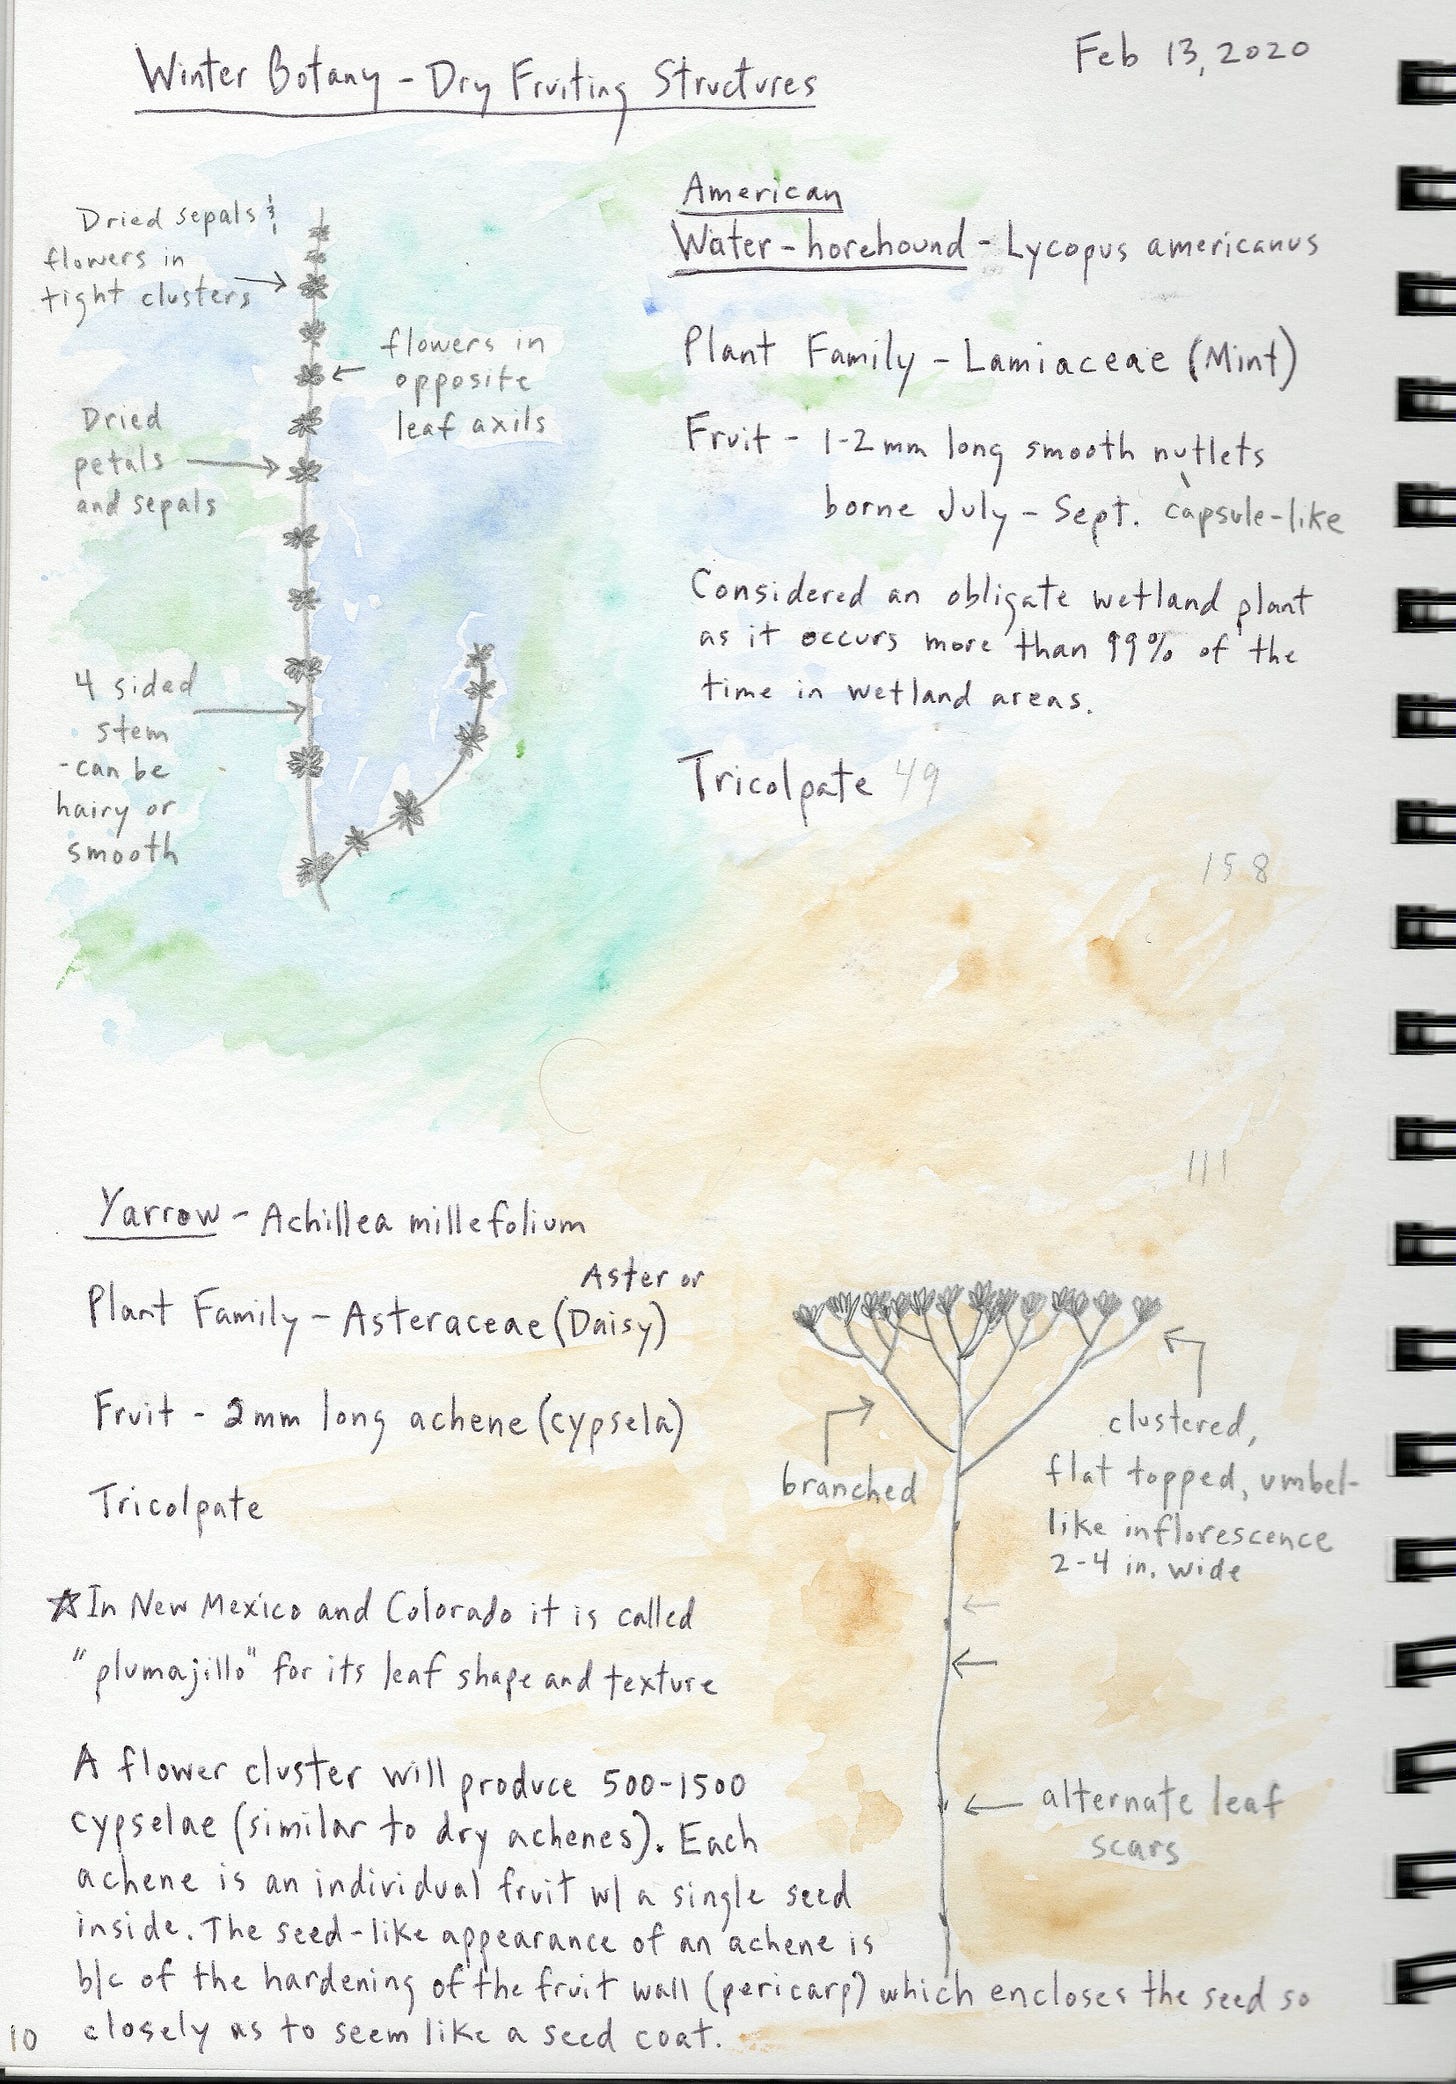 Winter Botany - Dry Fruiting Structures
Feb 13, 2020
Dried sepals &
flowers in
tight clusters
flowers in
opposite
leaf axils
Dried
petals
and sepals
4 sided
stem
-can be
hairy or
smooth
American
Water-horehound - Lycopus americanus
Plant Family - Lamiaceae (Mint)
Fruit - 1-2 mm long smooth nutlets
borne July - Sept. capsule-like
Considered an obligate wetland plant
as it occurs more than 99% of the
time in wetland areas.
Tricolpate 49
158
111
Yarrow - Achillea millefolium
Aster or
Plant Family - Asteraceae (Daisy)
Fruit - 2mm long achene (cypsela)
Tricolpate
☆In New Mexico and Colorado it is called
"plumajillo" for its leaf shape and texture
A flower cluster will produce 500-1500
cypselae (similar to dry achenes). Each
achene is an individual fruit w/ a single seed
inside. The seed-like appearance of an achene is
b/c of the hardening of the fruit wall (pericarp) which encloses the seed so
closely as to seem like a seed coat.
branched
clustered,
flat topped, umbel-
like inflorescence
2-4 in. wide
alternate leaf
scars
10